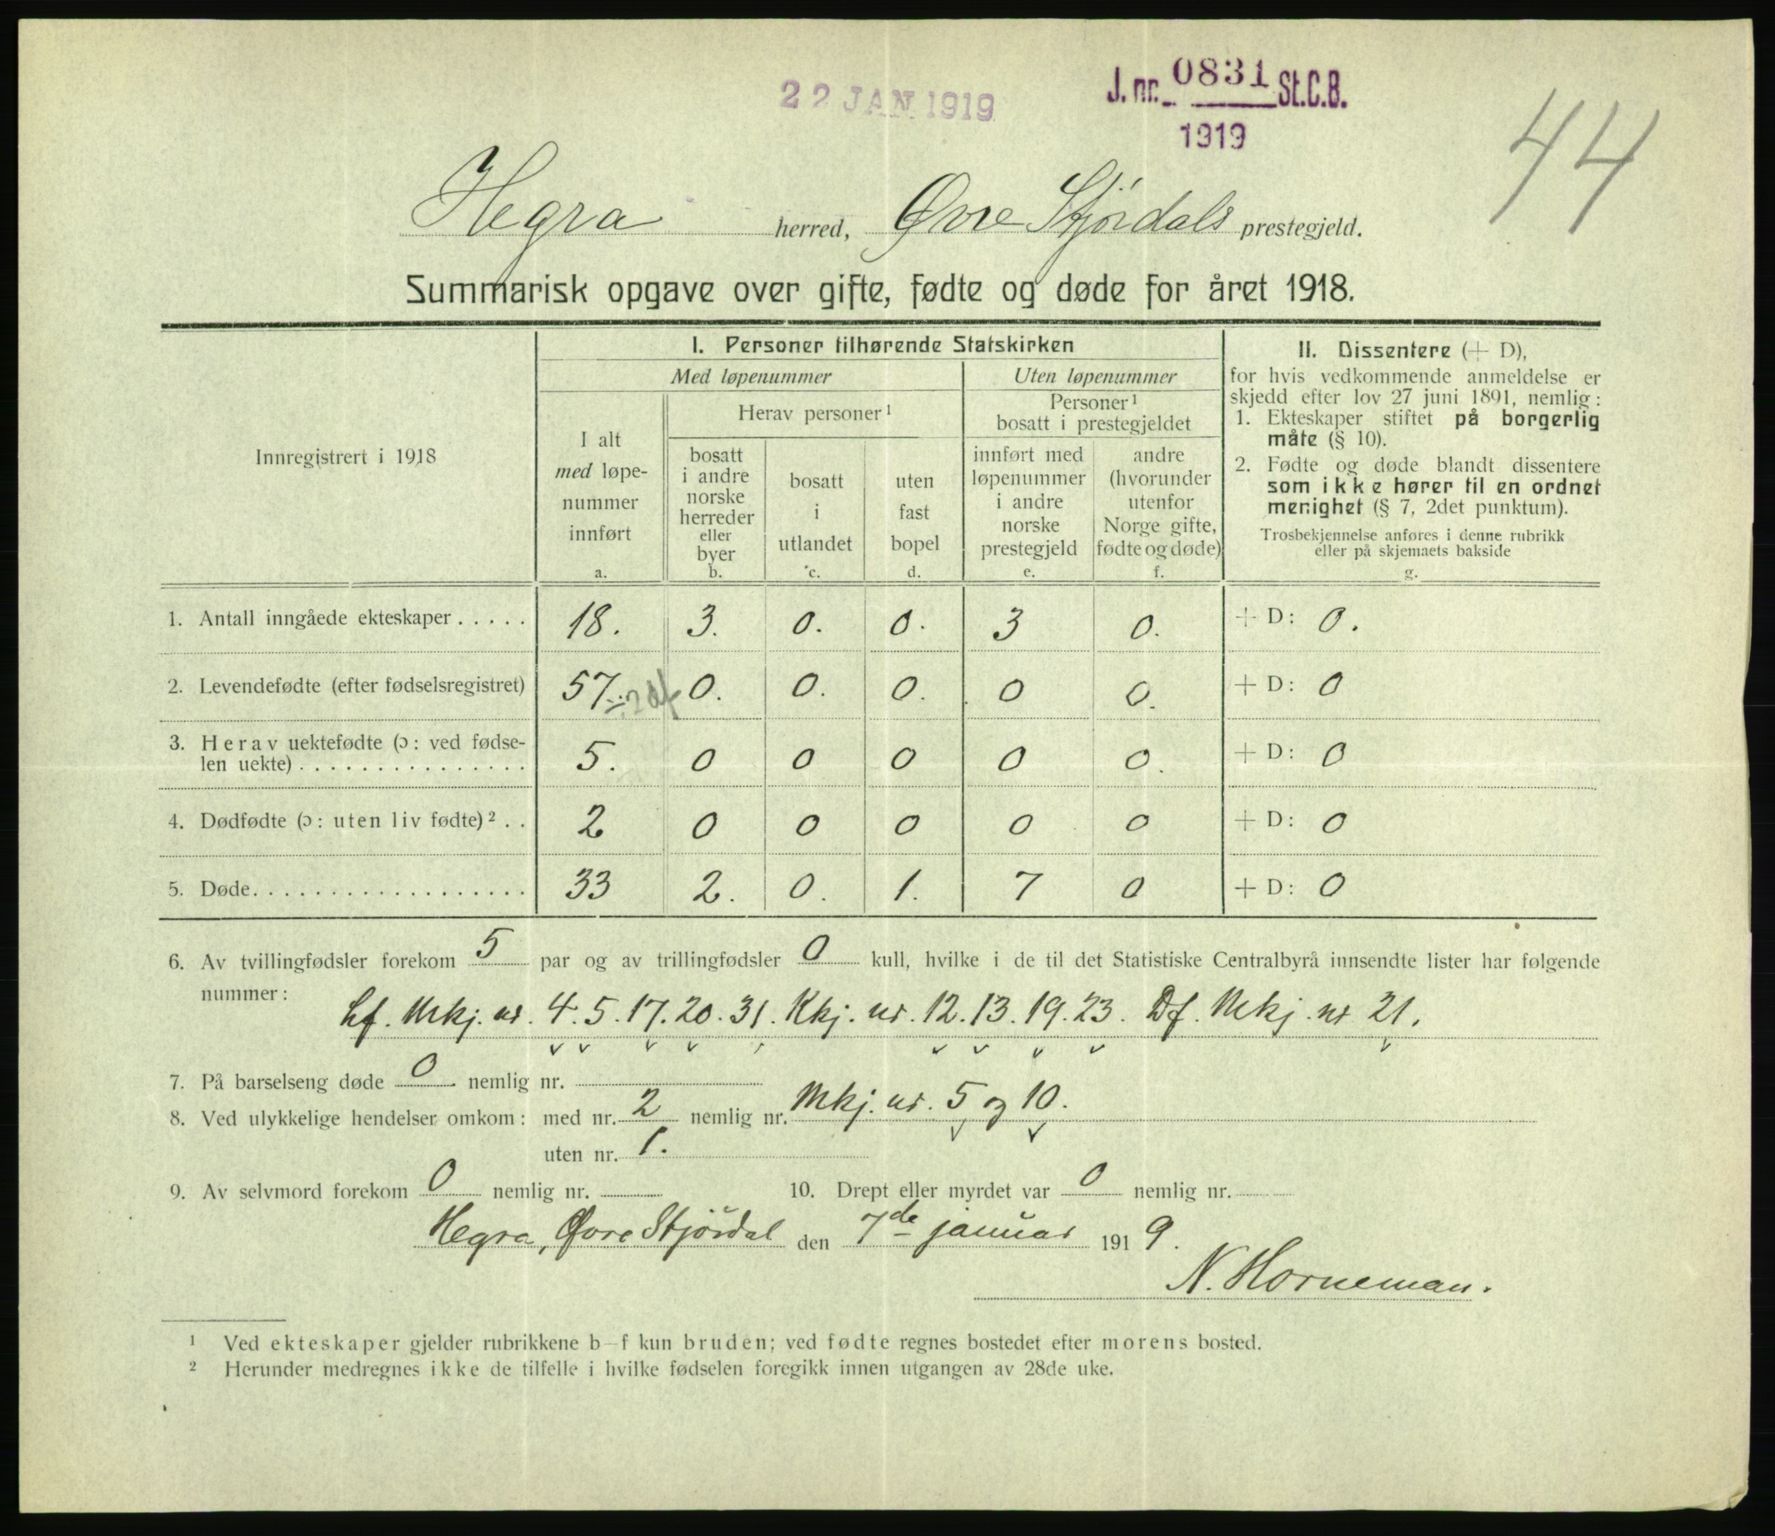 22 JAN 1919
J. nr. 0831 St.C.B.
1919
44
Hegra herred, Øvre Stjørdals prestegjeld.
Summarisk opgave over gifte, fødte og døde for året 1918.
Innregistrert i 1918
I. Personer tilhørende Statskirken
Med løpenummer
Uten løpenummer
I alt
med løpe-
nummer
innført
a.
Herav personer¹
bosatt
i andre
norske
herreder
eller
byer
b.
bosatt
i
utlandet
c.
uten
fast
bopel
d.
Personer¹
bosatt i prestegjeldet
innført med
løpenummer
i andre
norske
prestegjeld
e.
andre
(hvorunder
utenfor
Norge gifte,
fødte og døde)
f.
II. Dissentere (+ D),
for hvis vedkommende anmeldelse er
skjedd efter lov 27 juni 1891, nemlig:
1. Ekteskaper stiftet på borgerlig
måte (§ 10).
2. Fødte og døde blandt dissentere
som ikke hører til en ordnet
menighet (§ 7, 2det punktum).
Trosbekjennelse anføres i denne rubrikk
eller på skjemaets bakside
g.
1. Antall inngåede ekteskaper . . . . . 18. 3. 0. 0. 3 0. + D: 0.
2. Levendefødte (efter fødselsregistret) 57. ÷2df 0. 0. 0. 0 0. + D: 0
3. Herav uektefødte (ɔ: ved fødse-
len uekte) . . . . . . . . . . . . . . . 5. 0 0 0 0 0. + D: 0
4. Dødfødte (ɔ: uten liv fødte)² . . 2 0 0 0 0 0 + D: 0
5. Døde. . . . . . . . . . . . . . . . . . 33 2. 0. 1. 7 0 + D: 0
6. Av tvillingfødsler forekom 5 par og av trillingfødsler 0 kull, hvilke i de til det Statistiske Centralbyrå innsendte lister har følgende
nummer: Lf. Mkj. nr. 4. 5. 17. 20. 31. Kkj. nr. 12. 13. 19. 23. Df. Mkj. nr 21.
7. På barselseng døde 0 nemlig nr.
8. Ved ulykkelige hendelser omkom: med nr. 2 nemlig nr. Mkj. nr. 5 og 10.
uten nr. 1.
9. Av selvmord forekom 0 nemlig nr. 10. Drept eller myrdet var 0 nemlig nr.
Hegra, Øvre Stjørdal den 7de januar 1919.
N. Horneman.
¹ Ved ekteskaper gjelder rubrikkene b—f kun bruden; ved fødte regnes bostedet efter morens bosted.
² Herunder medregnes ikke de tilfelle i hvilke fødselen foregikk innen utgangen av 28de uke.